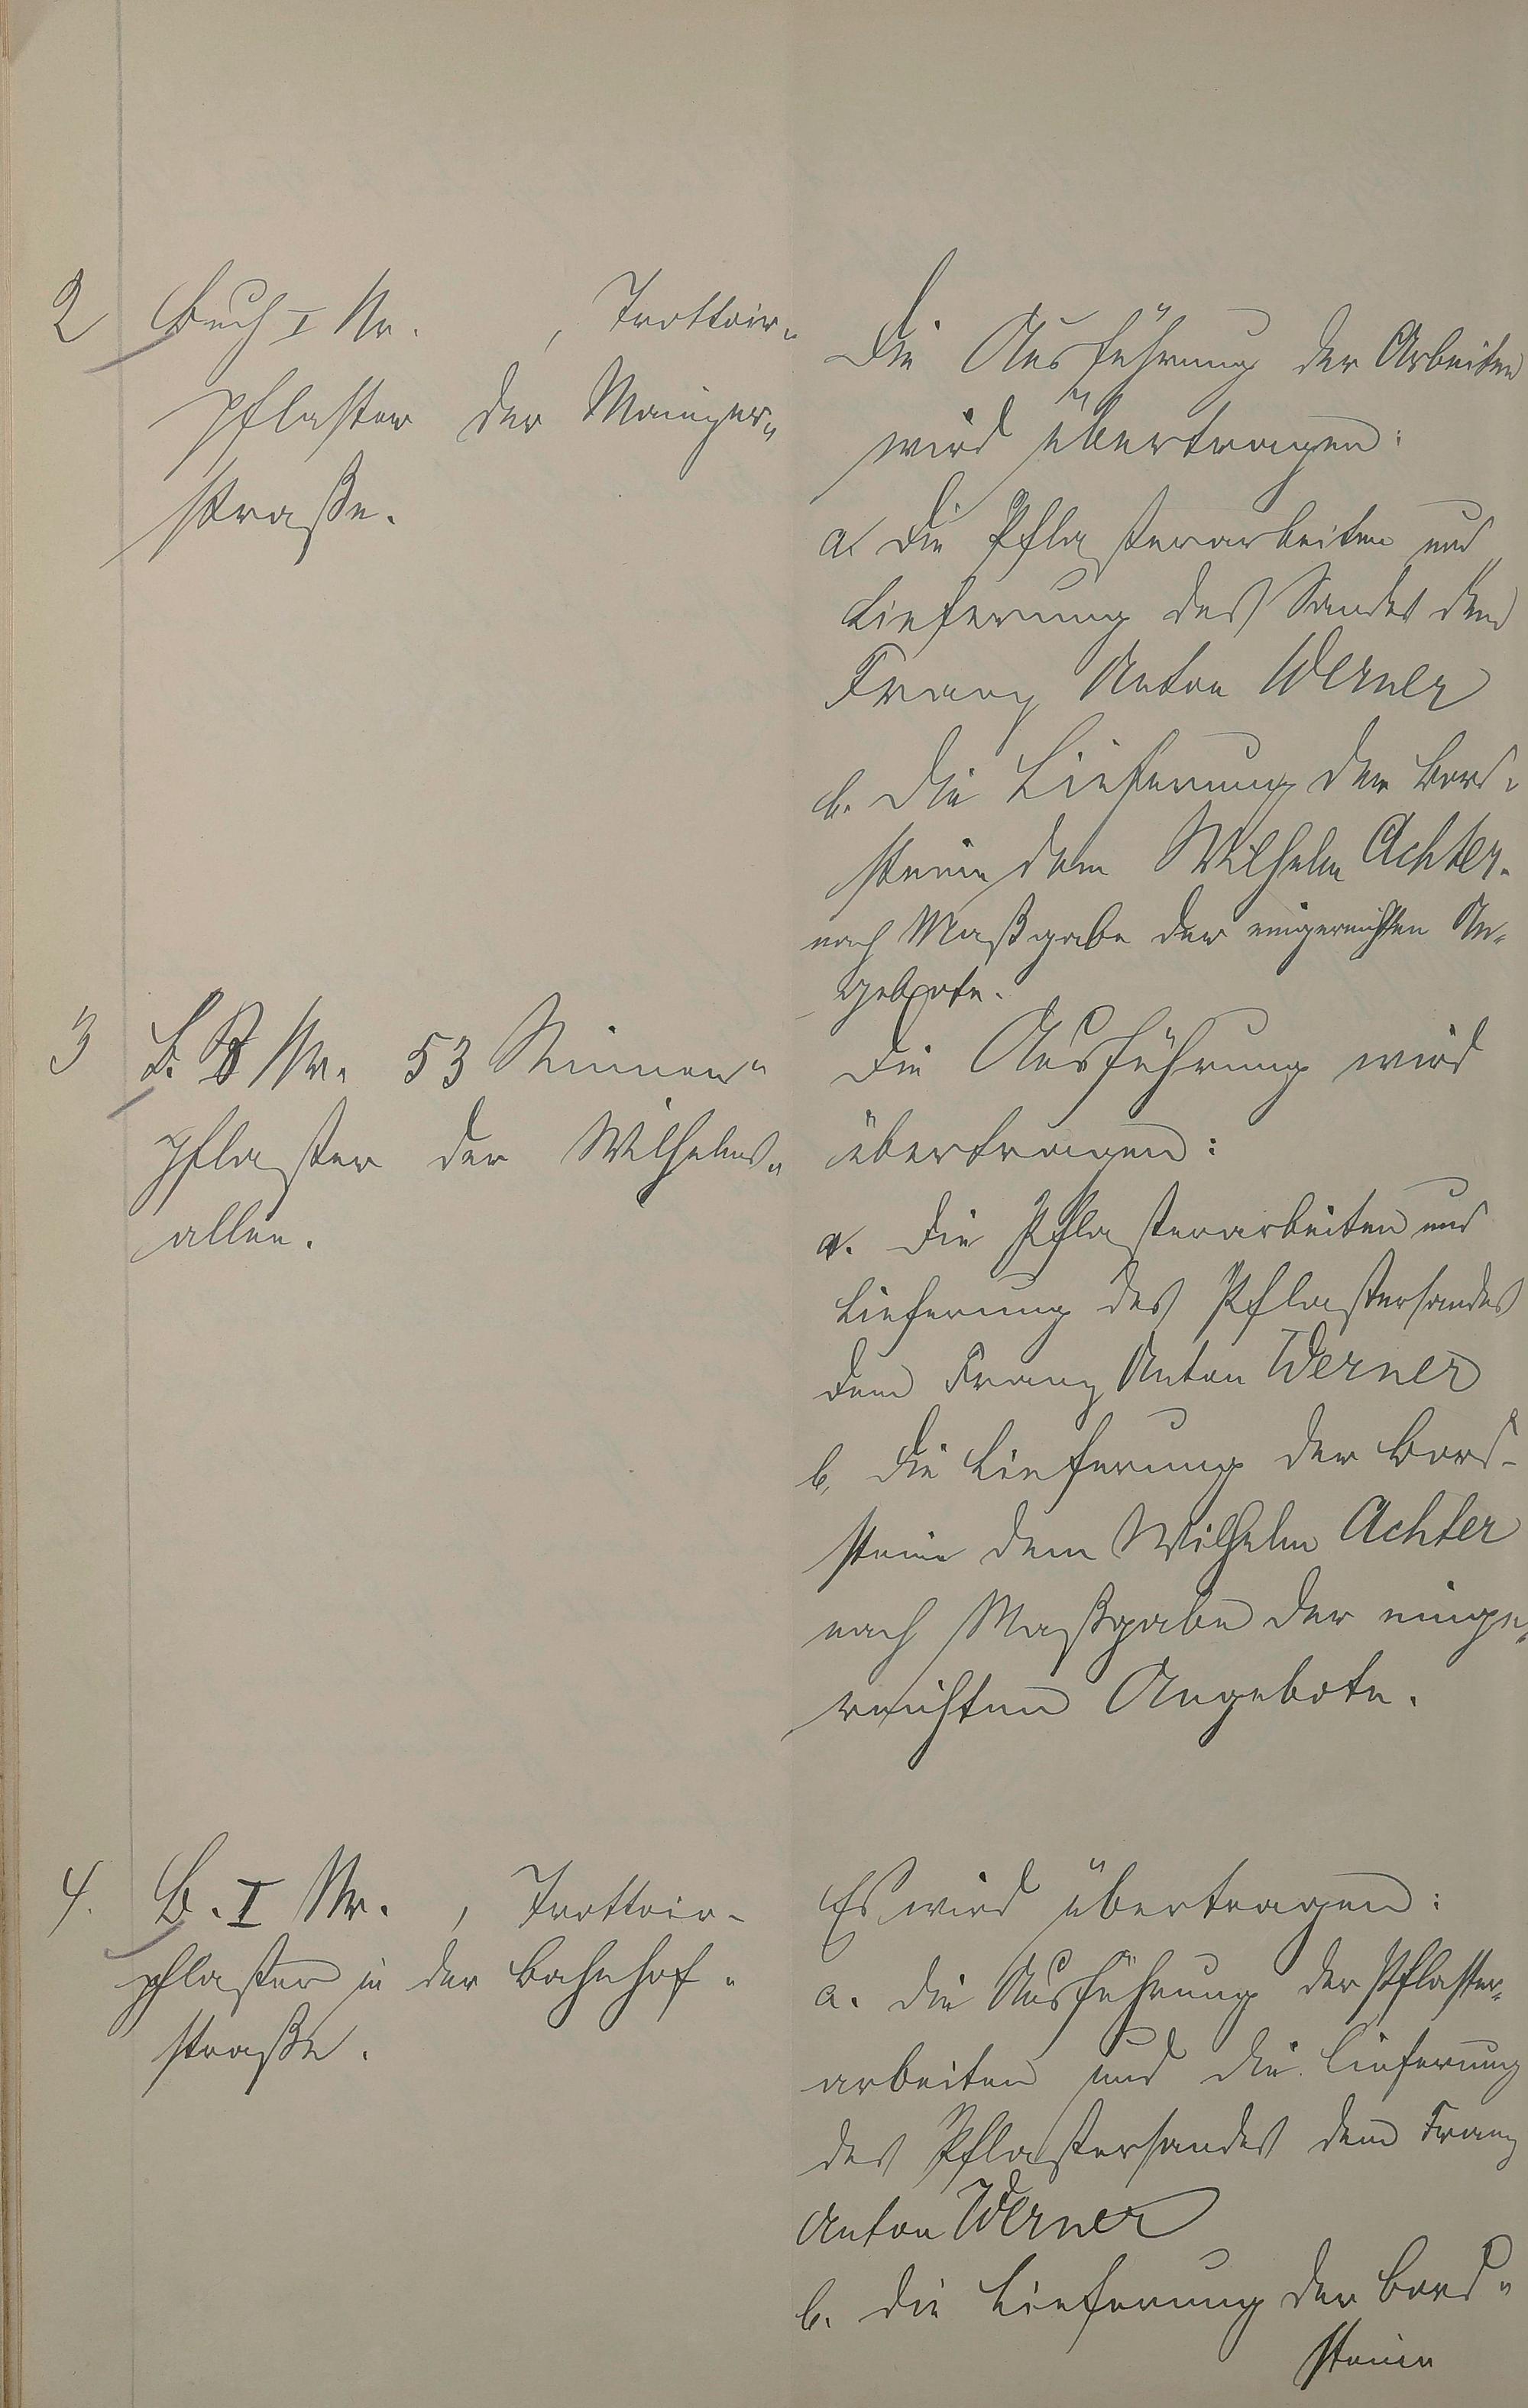 2 Buch I Nr.      , Trottoir-
pflaster der Mainzer-
straße.
Die Ausführung der Arbeiten
wird übertragen:
a. die Pflasterarbeiten und
Lieferung des Sandes dem
Franz Anton Werner
b. die Lieferung der Bord-
steine dem Wilhelm Achter.
nach Maßgabe der eingereichten An-
gebote.
3 B. Nr. 53 Rinnen-
pflaster der Wilhelms-
allee.
Die Ausführung wird
übertragen:
a. die Pflasterarbeiten und
Lieferung des Pflastersandes
dem Franz Anton Werner
b. die Lieferung der Bord-
steine dem Wilhelm Achter
nach Maßgabe der einge-
reichten Angebote.
4. B. I Nr.   , Trottoir-
pflaster in der Bahnhof-
straße.
Es wird übertragen:
a. die Ausführung der Pflaster-
arbeiten und die Lieferung
des Pflastersandes dem Franz
Anton Werner
b. die Lieferung der Bord-
steine